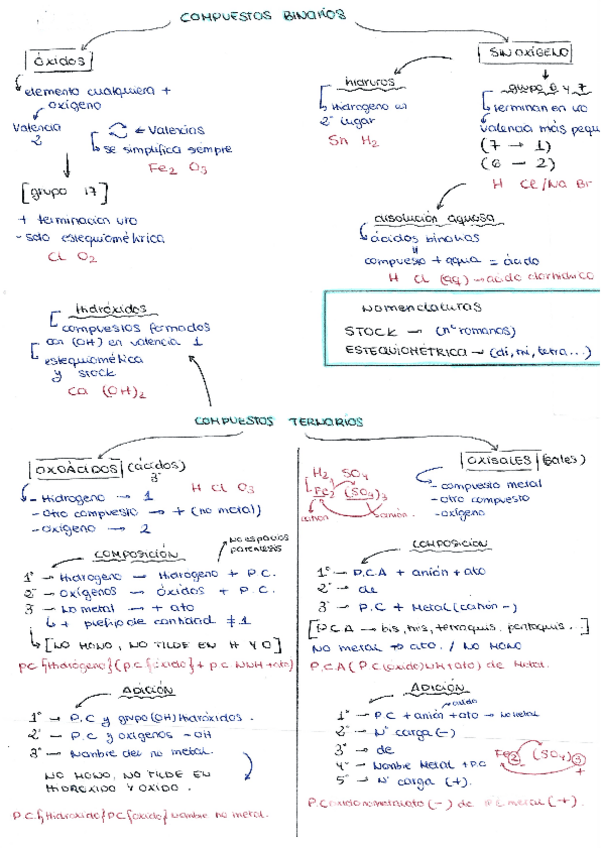 COMPUESTOS BINARIOS
ÓXIDOS
elemento cualquiera +
oxígeno
Valencia
2
← Valencias
se simplifica siempre
Fe2 O3
[grupo 17]
+ terminacion uro
- solo estequiométrica
Cl O2
hidruros
Hidrogeno en
2º lugar
Sn H2
SIN OXÍGENO
grupo 6 y 7
terminan en uro
valencia más pequ
(7 → 1)
(6 - 2)
H Cl / Na Br
disolución aquosa
ácidos binarios
compuesto + agua = ácido
H Cl (aq) → ácido clorhídrico
Nomenclaturas
STOCK → (nº romanos)
ESTEQUIOMÉTRICA → (di, tri, tetra...)
Hidróxidos
compuestos formados
con (OH) en valencia 1
estequiométrica
y stock
Ca (OH)2
COMPUESTOS TERNARIOS
OXOÁCIDOS (ácidos)
- Hidrógeno → 1
- otro compuesto → + (no metal)
- oxígeno → 2
H Cl O3
COMPOSICIÓN
NO ESPACIOS
PARENTESIS
1º → Hidrogeno → Hidrogeno + P.C.
2º → oxígenos → óxidos + P.C.
3º → No metal → + ato
+ prefijo de cantidad ≠ 1
[NO MONO, NO TILDE EN H Y O]
ADICIÓN
1º → P.C y grupo (OH) Hidróxidos.
2º → P.C y oxígenos - OH
3º → Nombre del no metal.
NO MONO, NO TILDE EN
HIDROXIDO Y OXIDO.
P.C.{Hidroxido}PC{oxido} nombre no metal.
OXISALES (sales)
- compuesto metal
- otro compuesto
- oxígeno
H2 SO4
Fe2 (SO4)3
catión
anión.
COMPOSICION
1º → P.C.A + anión + ato
2º → de
3º → P.C + Metal (catión -)
[P.C.A → bis, tris, tetraquis, pentaquis...]
NO metal → ato. / NO MONO
ADICIÓN
1º → P.C + anión + ato → no metal
2º → Nº carga (-)
3º → de
4º → Nombre Metal + P.C
5º → Nº carga (+).
Fe2 (SO4)3
+